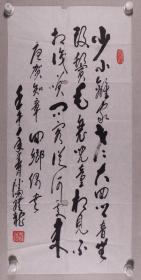 少小離家老大回鄉音無
改鬢毛衰兒童相見不
相識笑問客從何處來
唐賀知章回鄉偶書
壬午年